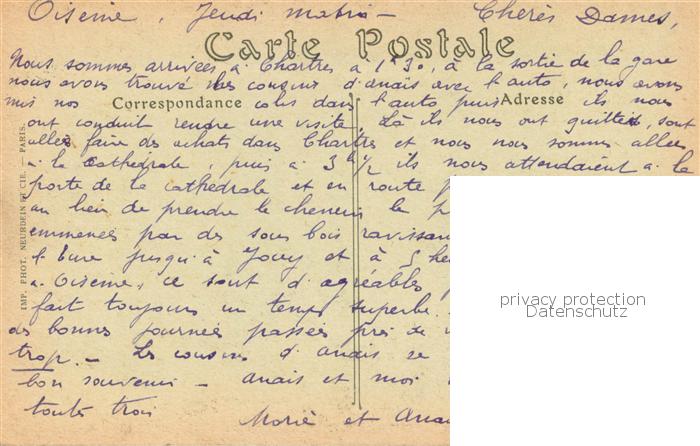 Oisème, Jeudi matin - Chères Dames,
Carte Postale
Nous sommes arrivées à Chartres à 1h30, à la sortie de la gare
nous avons trouvé les cousins d'anaïs avec l'auto, nous avons
mis nos colis dans l'auto puis ils nous
Correspondance Adresse
ont conduit rendre une visite. Là ils nous ont quittées, sont
allés faire des achats dans Chartres et nous nous sommes allées
à la cathédrale, puis à 3h1/2 ils nous attendaient à la
porte de la cathédrale et en route
au lieu de prendre le chemin le p
emmenées par des sous bois ravissan
l'Eure jusqu'à Jouy et à 5 he
à Oisème, ce sont d'agréables
fait toujours un temps superbe.
des bonnes journées passées près de v
trop. - Les cousins d'anaïs se
bon souvenir - anaïs et moi
toutes trois
Marie et Anaï
IMP. PHOT. NEURDEIN ET CIE. — PARIS.
privacy protection
Datenschutz